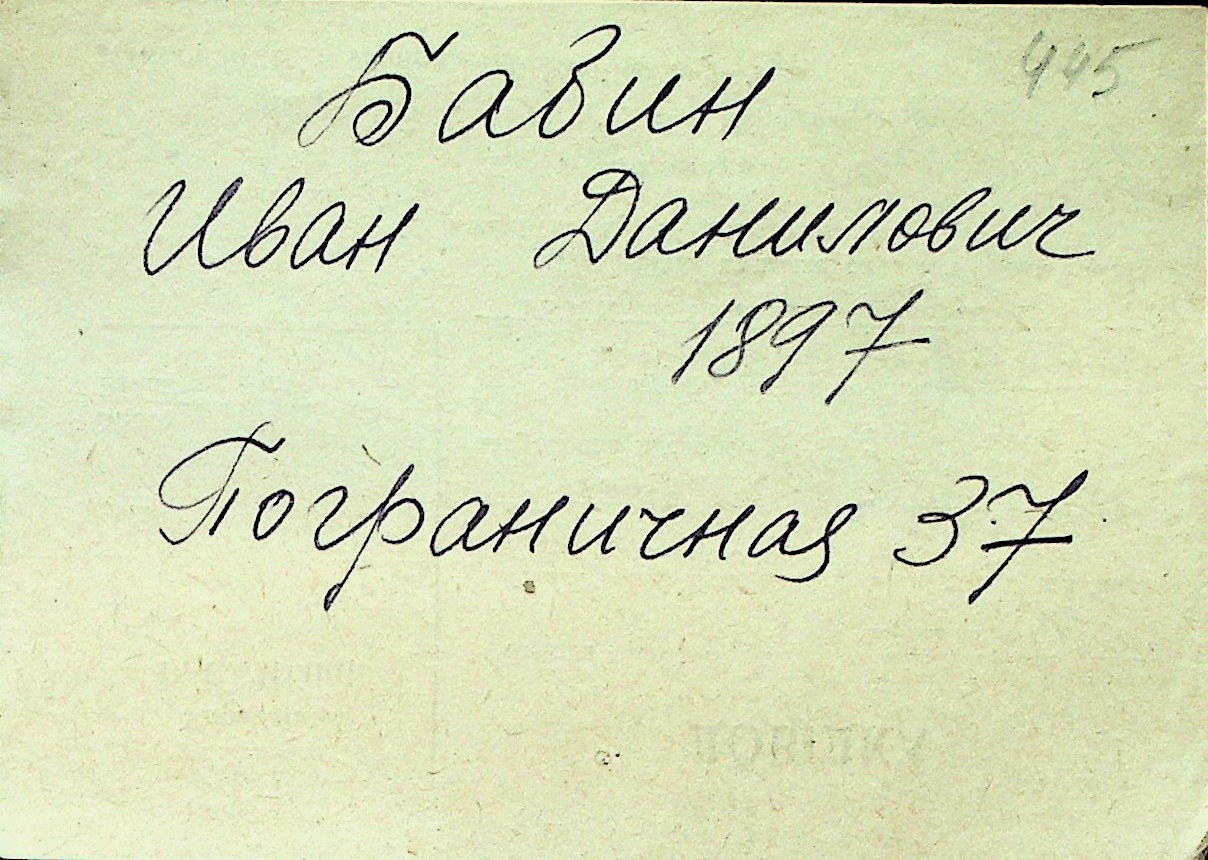 445
Бавин
Иван Данилович
1897
Пограничная 37